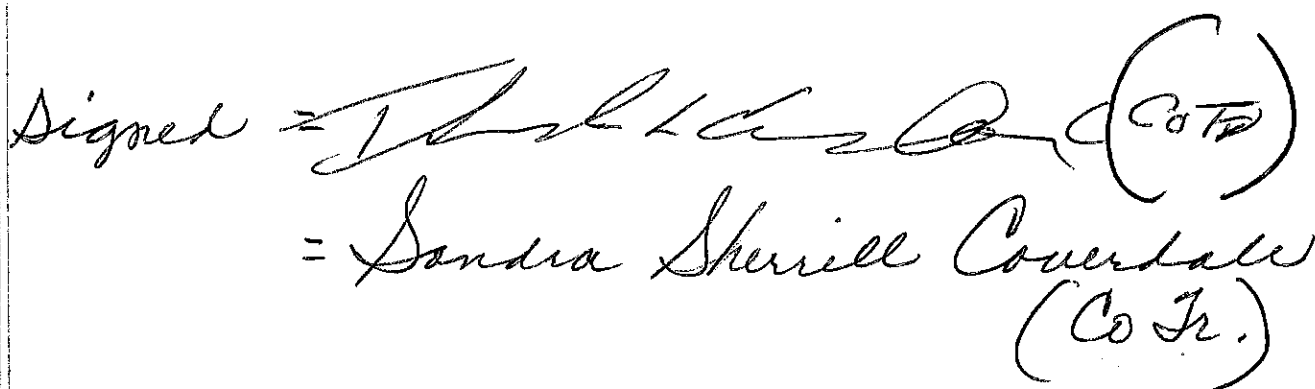 Signed = (Co Tr)
= Sandra Sherrill Coverdale
(Co Tr.)